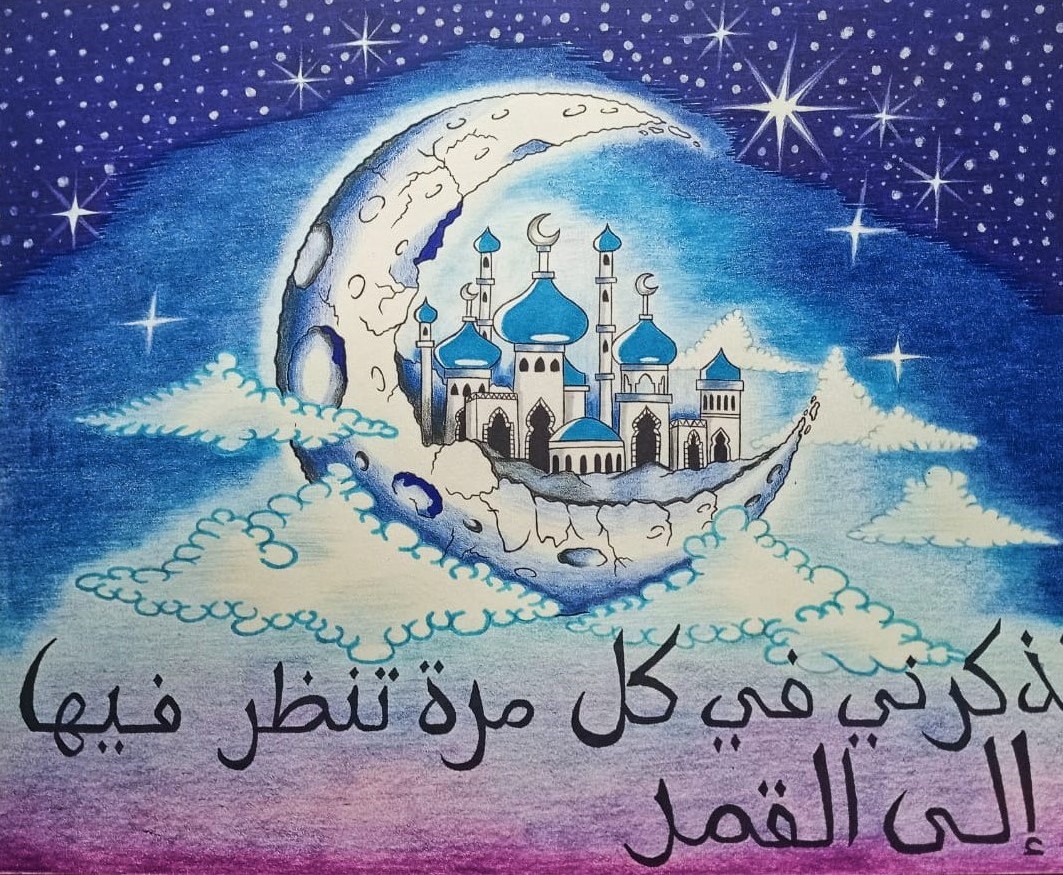 ذكرني في كل مرة تنظر فيها
إلى القمر